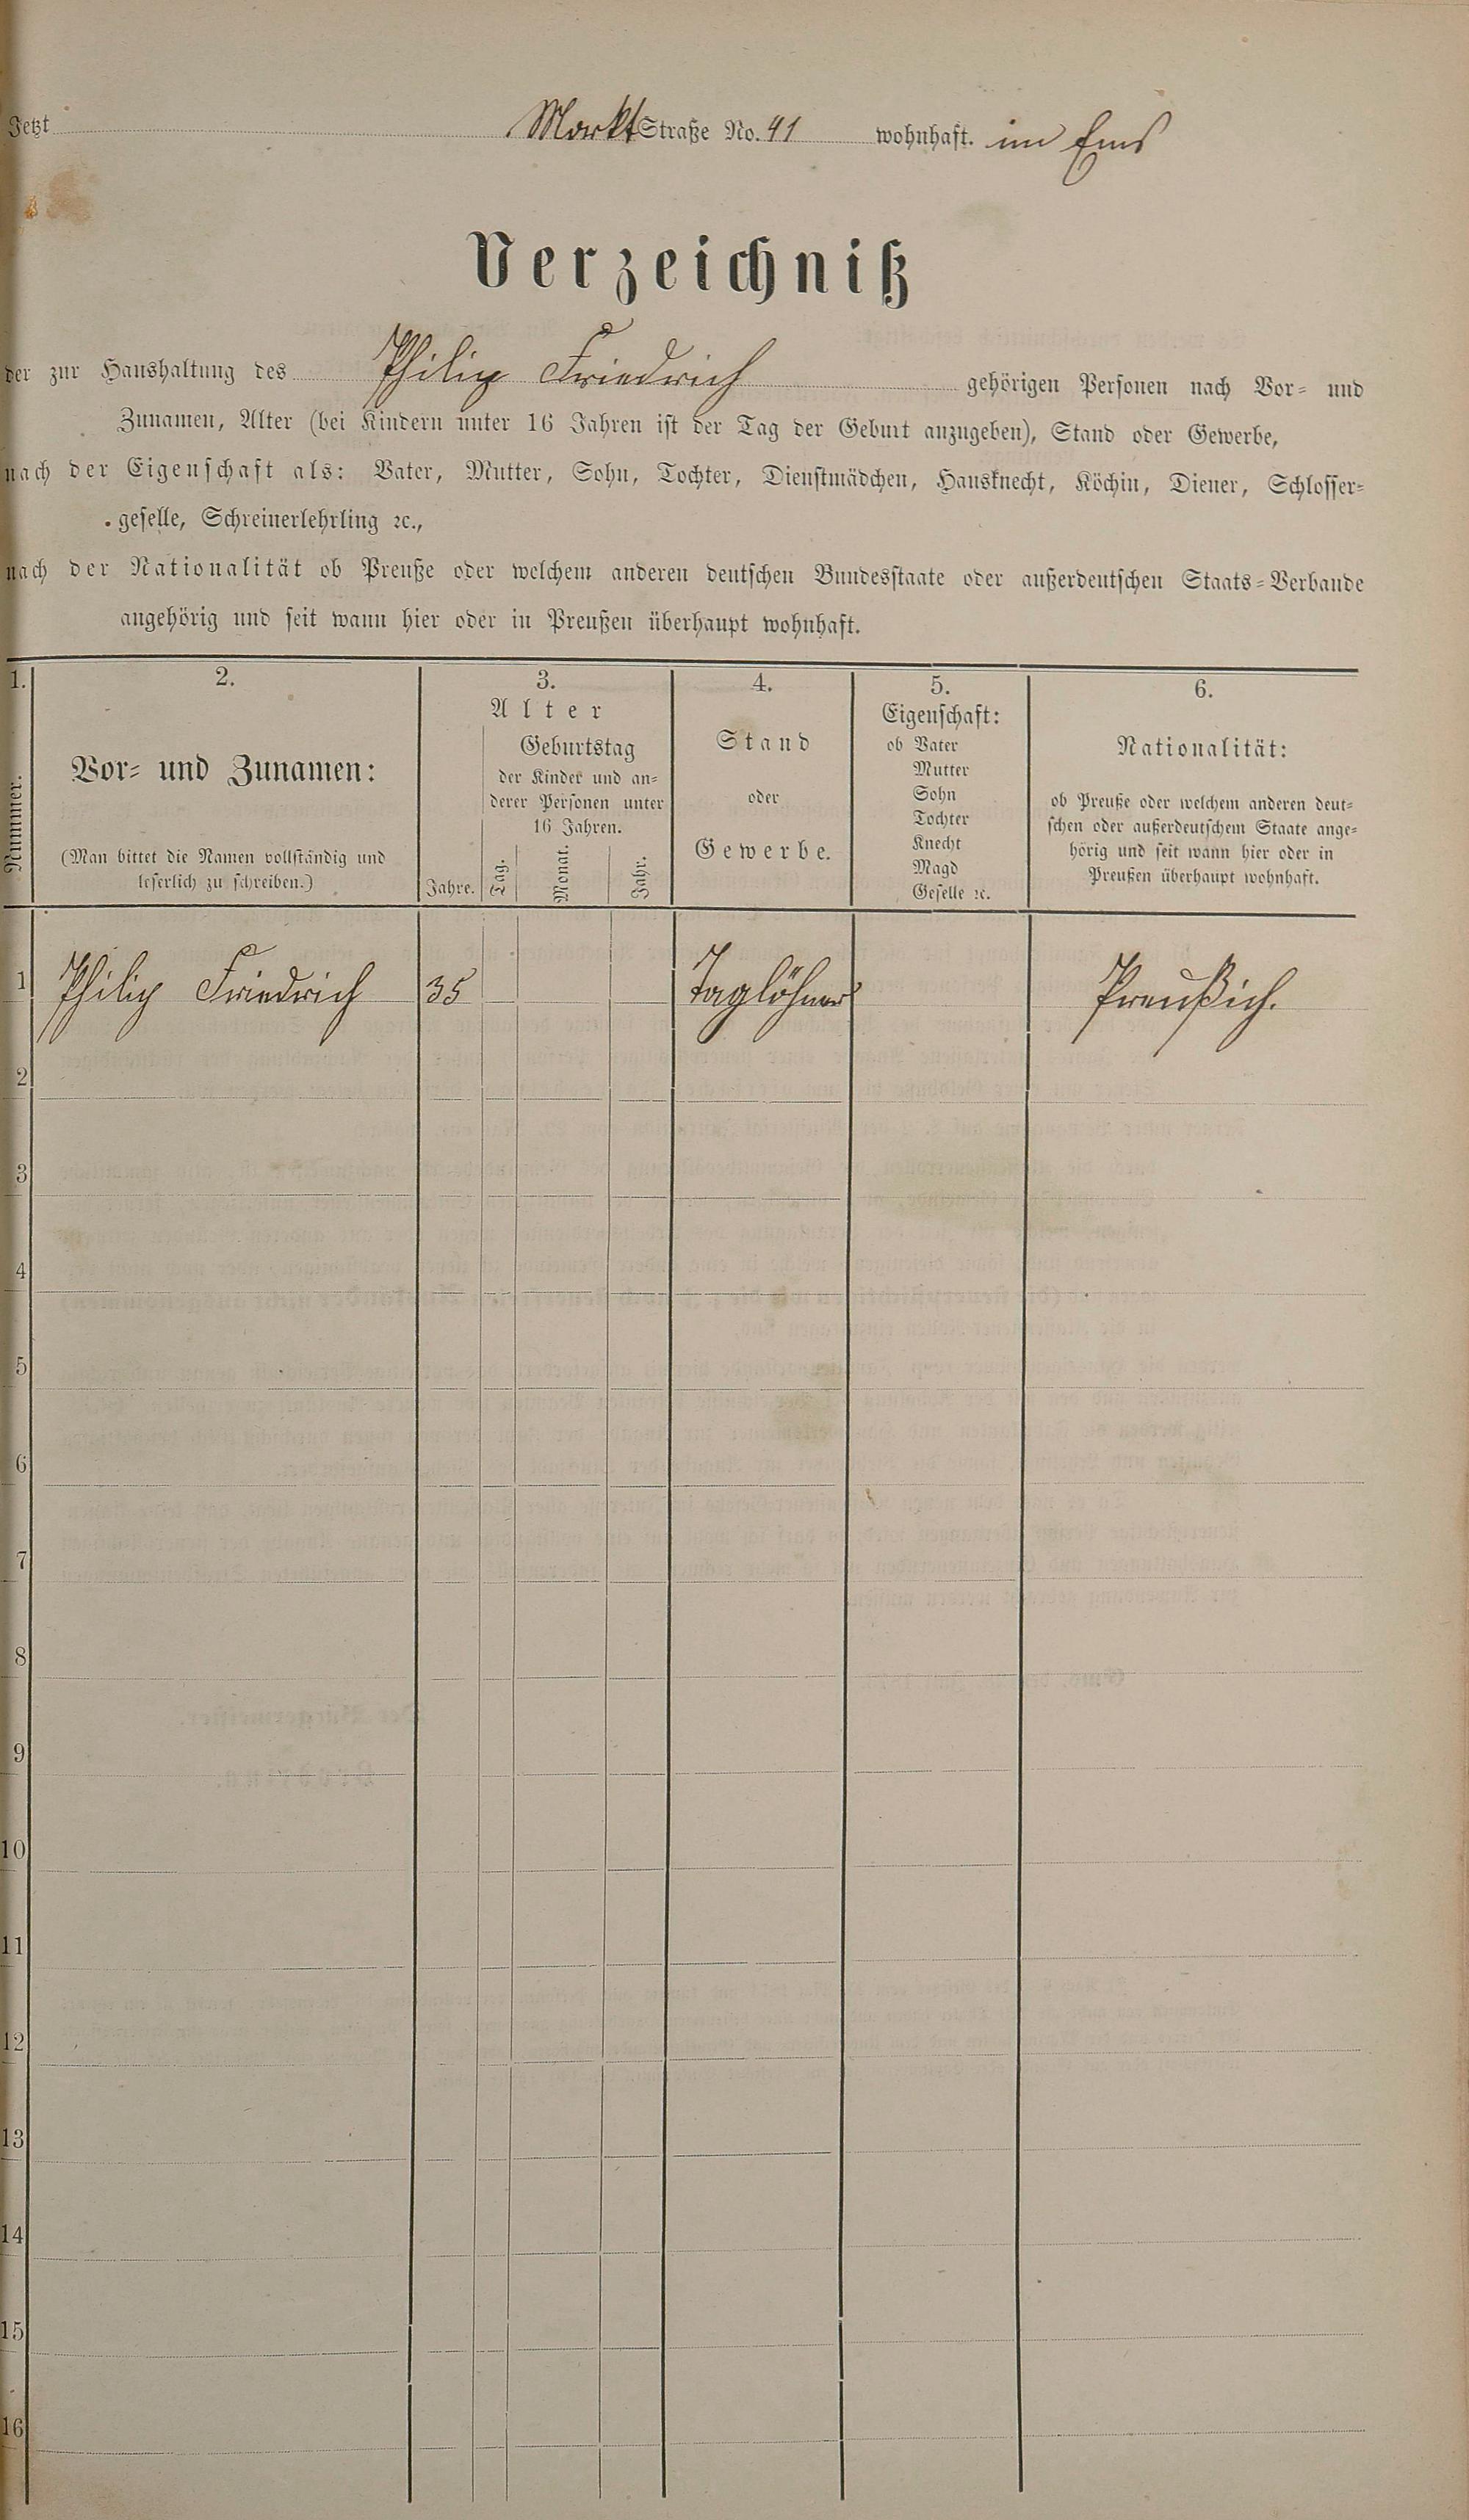 Jetzt Markt Straße No. 41 wohnhaft. im Ems
Verzeichniß
der zur Haushaltung des Philip Friedrich gehörigen Personen nach Vor- und
Zunamen, Alter (bei Kindern unter 16 Jahren ist der Tag der Geburt anzugeben), Stand oder Gewerbe,
nach der Eigenschaft als: Vater, Mutter, Sohn, Tochter, Dienstmädchen, Hausknecht, Köchin, Diener, Schlosser-
geselle, Schreinerlehrling ꝛc.,
nach der Nationalität ob Preuße oder welchem anderen deutschen Bundesstaate oder außerdeutschen Staats-Verbande
angehörig und seit wann hier oder in Preußen überhaupt wohnhaft.
1.
Nummer.
2.
Vor- und Zunamen:
(Man bittet die Namen vollständig und
leserlich zu schreiben.)
3.
Alter
Jahre.
Geburtstag
der Kinder und an-
derer Personen unter
16 Jahren.
Tag.
Monat.
Jahr.
4.
Stand
oder
Gewerbe.
5.
Eigenschaft:
ob Vater
Mutter
Sohn
Tochter
Knecht
Magd
Geselle ꝛc.
6.
Nationalität:
ob Preuße oder welchem anderen deut-
schen oder außerdeutschem Staate ange-
hörig und seit wann hier oder in
Preußen überhaupt wohnhaft.
1 Philip Friedrich 35 Taglöhner Preußich.
2
3
4
5
6
7
8
9
10
11
12
13
14
15
16